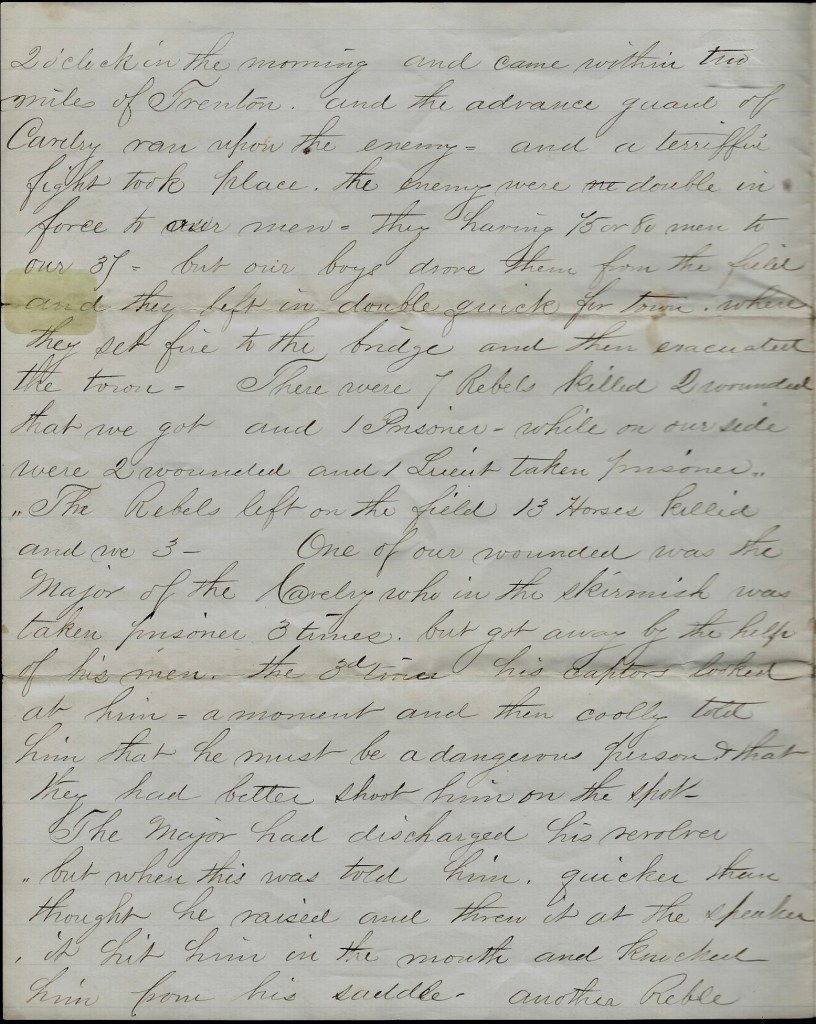 2 o'clock in the morning and came within two
miles of Trenton. and the advance guard of
Cavelry ran upon the enemy = and a terriffic
fight took place. the enemy were ne double in
force to our men = they having 75 or 80 men to
our 37 = but our boys drove them from the field
and they left in double quick for town. where
they set fire to the bridge and then evacuated
the town = There were 7 Rebels killed 2 wounded
that we got and 1 Prisoner - while on our side
were 2 wounded and 1 Lieut taken prisoner "
" The Rebels left on the field 13 Horses killed
and we 3 - One of our wounded was the
Major of the Cavelry who in the skirmish was
taken prisoner 3 times. but got away by the help
of his men. the 3d time his captors looked
at him = a moment and then coolly told
him that he must be a dangerous person & that
they had better shoot him on the spot -
The Major had discharged his revolver
" but when this was told him. quicker than
thought he raised and threw it at the speaker
, it hit him in the mouth and knocked
him from his saddle - another Reble